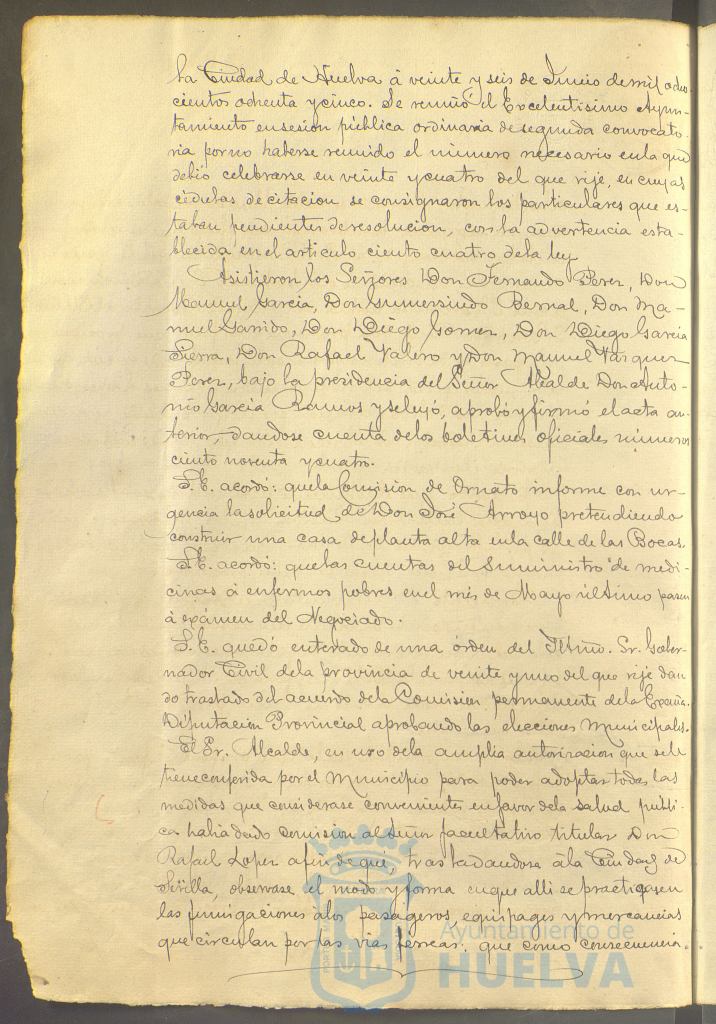 la Ciudad de Huelva á veinte y seis de Junio de mil ocho-
cientos ochenta y cinco. Se reunió el Excelentisimo Ayun-
tamiento en sesion pública ordinaria de segunda convocato-
ria por no haberse reunido el número necesario en la que
debió celebrarse en veinte y cuatro del que rije, en cuyas
cédulas de citacion se consignaron los particulares que es-
taban pendientes de resolucion, con la advertencia esta-
blecida en el articulo ciento cuatro de la ley
Asistieron los Señores Don Fernando Perez, Don
Manuel Garcia, Don Gumersindo Bernal, Don Ma-
nuel Garrido, Don Diego Gomez, Don Diego Garcia
Sierra, Don Rafael Valero y Don Manuel Vazquez
Perez, bajo la presidencia del Señor Alcalde Don Anto-
nio Garcia Ramos y se leyó, aprobó y firmó el acta an-
terior, dandose cuenta de los boletines oficiales números
ciento noventa y cuatro.
S.E. acordó: que la Comision de Ornato informe con ur-
gencia la solicitud de Don José Arroyo pretendiendo
construir una casa de planta alta en la calle de las Bocas.
S.E. acordó: que las cuentas del suministro de medi-
cinas á enfermos pobres en el mes de Mayo último pasen
á exámen del Negociado.
S.E. quedó enterado de una órden del Iltmo. Sr. Gober-
nador Civil de la provincia de veinte y uno del que rije dan-
do traslado del acuerdo de la Comision permanente de la Excma.
Diputacion Provincial aprobando las elecciones Municipales.
El Sr. Alcalde, en uso de la amplia autorizacion que se le
tiene conferida por el Municipio para poder adoptar todas las
medidas que considerase convenientes en favor de la salud públi-
ca habia dado comision al Señor facultativo titular Don
Rafael Lopez a fin de que, trasladandose á la Ciudad de
Sevilla, observase el modo y forma en que alli se practiquen
las fumigaciones á los pasageros, equipages y mercancias
que circulan por las vias ferreas; que como consecuencia
Ayuntamiento de
HUELVA